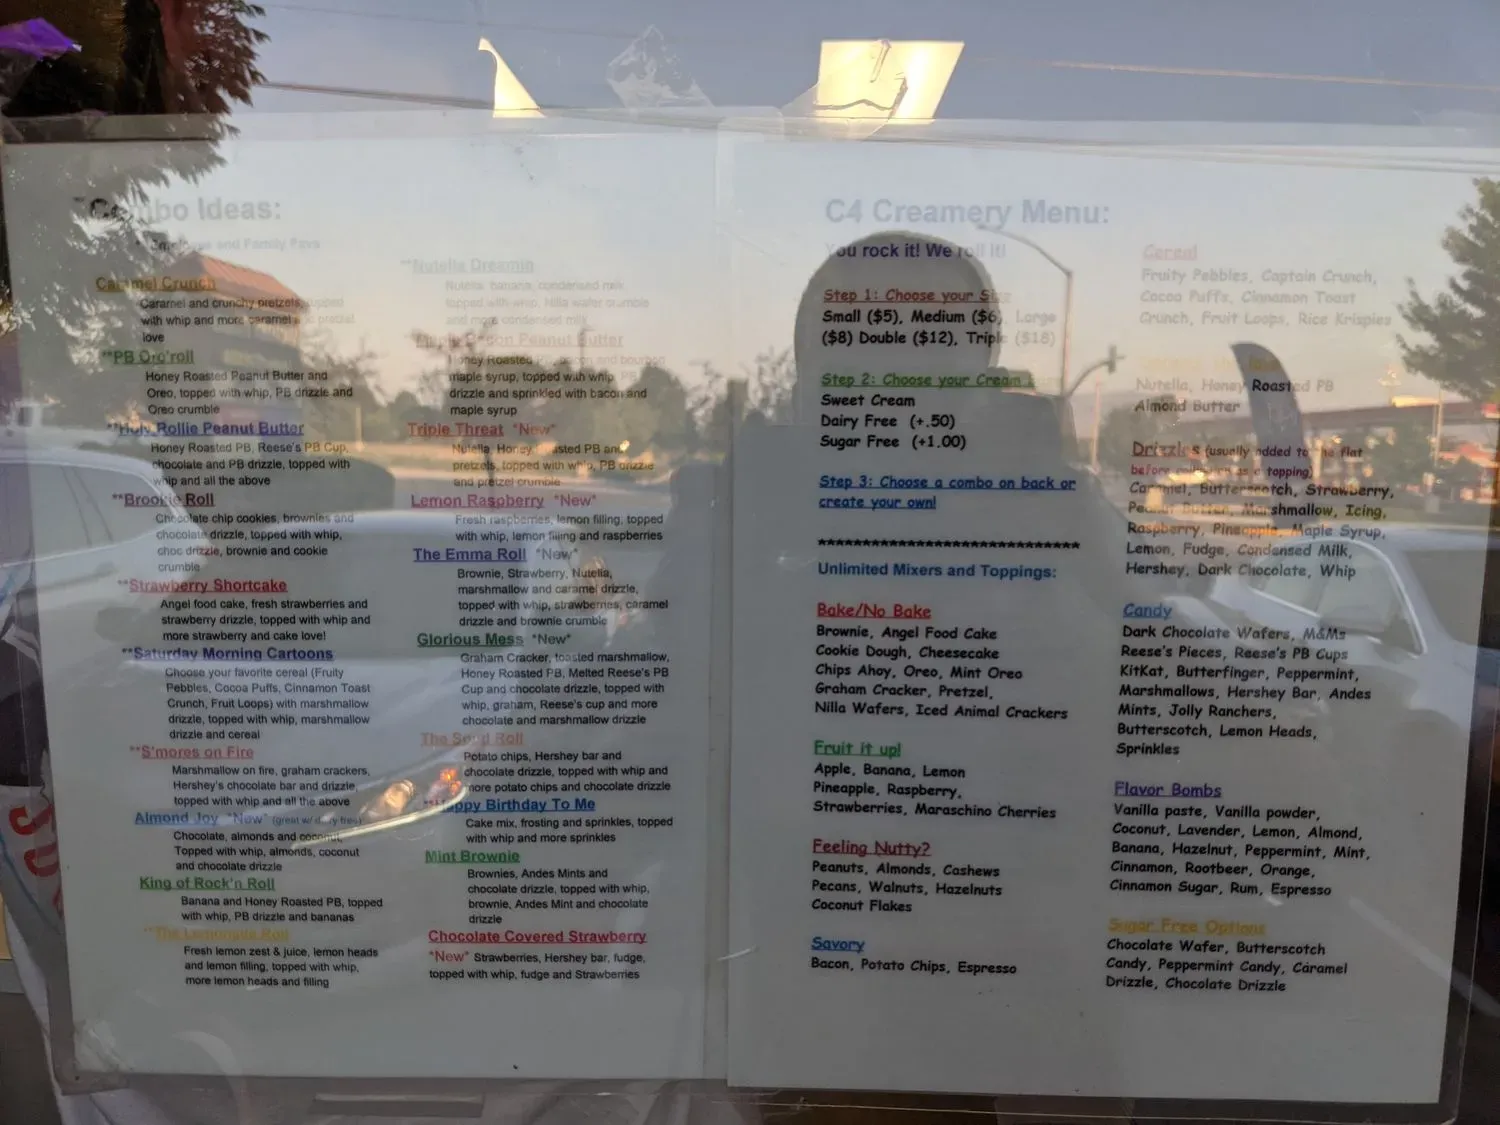 Combo Ideas:
**Employee and Family Favs
Caramel Crunch
Caramel and crunchy pretzels, topped
with whip and more caramel and pretzel
love
**PB O-ro'roll
Honey Roasted Peanut Butter and
Oreo, topped with whip, PB drizzle and
Oreo crumble
**Holy Rollie Peanut Butter
Honey Roasted PB, Reese's PB Cup,
chocolate and PB drizzle, topped with
whip and all the above
**Brookie Roll
Chocolate chip cookies, brownies and
chocolate drizzle, topped with whip,
choc drizzle, brownie and cookie
crumble
**Strawberry Shortcake
Angel food cake, fresh strawberries and
strawberry drizzle, topped with whip and
more strawberry and cake love!
**Saturday Morning Cartoons
Choose your favorite cereal (Fruity
Pebbles, Cocoa Puffs, Cinnamon Toast
Crunch, Fruit Loops) with marshmallow
drizzle, topped with whip, marshmallow
drizzle and cereal
**S'mores on Fire
Marshmallow on fire, graham crackers,
Hershey's chocolate bar and drizzle,
topped with whip and all the above
Almond Joy *New* (great w/ dairy free)
Chocolate, almonds and coconut,
Topped with whip, almonds, coconut
and chocolate drizzle
King of Rock'n Roll
Banana and Honey Roasted PB, topped
with whip, PB drizzle and bananas
**The Lemonade Roll
Fresh lemon zest & juice, lemon heads
and lemon filling, topped with whip,
more lemon heads and filling
**Nutella Dreamin
Nutella, banana, condensed milk,
topped with whip, Nilla wafer crumble
and more condensed milk
Maple Bacon Peanut Butter
Honey Roasted PB, bacon and bourbon
maple syrup, topped with whip, PB
drizzle and sprinkled with bacon and
maple syrup
Triple Threat *New*
Nutella, Honey Roasted PB and
pretzels, topped with whip, PB drizzle
and pretzel crumble
Lemon Raspberry *New*
Fresh raspberries, lemon filling, topped
with whip, lemon filling and raspberries
The Emma Roll *New*
Brownie, Strawberry, Nutella,
marshmallow and caramel drizzle,
topped with whip, strawberries, caramel
drizzle and brownie crumble
Glorious Mess *New*
Graham Cracker, toasted marshmallow,
Honey Roasted PB, Melted Reese's PB
Cup and chocolate drizzle, topped with
whip, graham, Reese's cup and more
chocolate and marshmallow drizzle
The Roll
Potato chips, Hershey bar and
chocolate drizzle, topped with whip and
more potato chips and chocolate drizzle
**Happy Birthday To Me
Cake mix, frosting and sprinkles, topped
with whip and more sprinkles
Mint Brownie
Brownies, Andes Mints and
chocolate drizzle, topped with whip,
brownie, Andes Mint and chocolate
drizzle
Chocolate Covered Strawberry
*New* Strawberries, Hershey bar, fudge,
topped with whip, fudge and Strawberries
C4 Creamery Menu:
You rock it! We roll it!
Step 1: Choose your Size
Small ($5), Medium ($6), Large
($8) Double ($12), Triple ($18)
Step 2: Choose your Cream
Sweet Cream
Dairy Free (+.50)
Sugar Free (+1.00)
Step 3: Choose a combo on back or
create your own!
*****************************
Unlimited Mixers and Toppings:
Bake/No Bake
Brownie, Angel Food Cake
Cookie Dough, Cheesecake
Chips Ahoy, Oreo, Mint Oreo
Graham Cracker, Pretzel,
Nilla Wafers, Iced Animal Crackers
Fruit it up!
Apple, Banana, Lemon
Pineapple, Raspberry,
Strawberries, Maraschino Cherries
Feeling Nutty?
Peanuts, Almonds, Cashews
Pecans, Walnuts, Hazelnuts
Coconut Flakes
Savory
Bacon, Potato Chips, Espresso
Cereal
Fruity Pebbles, Captain Crunch,
Cocoa Puffs, Cinnamon Toast
Crunch, Fruit Loops, Rice Krispies
Nutella, Honey Roasted PB
Almond Butter
Drizzles (usually added to the flat
before as a topping)
Caramel, Butterscotch, Strawberry,
Peanut Butter, Marshmallow, Icing,
Raspberry, Pineapple, Maple Syrup,
Lemon, Fudge, Condensed Milk,
Hershey, Dark Chocolate, Whip
Candy
Dark Chocolate Wafers, M&Ms
Reese's Pieces, Reese's PB Cups
KitKat, Butterfinger, Peppermint,
Marshmallows, Hershey Bar, Andes
Mints, Jolly Ranchers,
Butterscotch, Lemon Heads,
Sprinkles
Flavor Bombs
Vanilla paste, Vanilla powder,
Coconut, Lavender, Lemon, Almond,
Banana, Hazelnut, Peppermint, Mint,
Cinnamon, Rootbeer, Orange,
Cinnamon Sugar, Rum, Espresso
Sugar Free Options
Chocolate Wafer, Butterscotch
Candy, Peppermint Candy, Caramel
Drizzle, Chocolate Drizzle